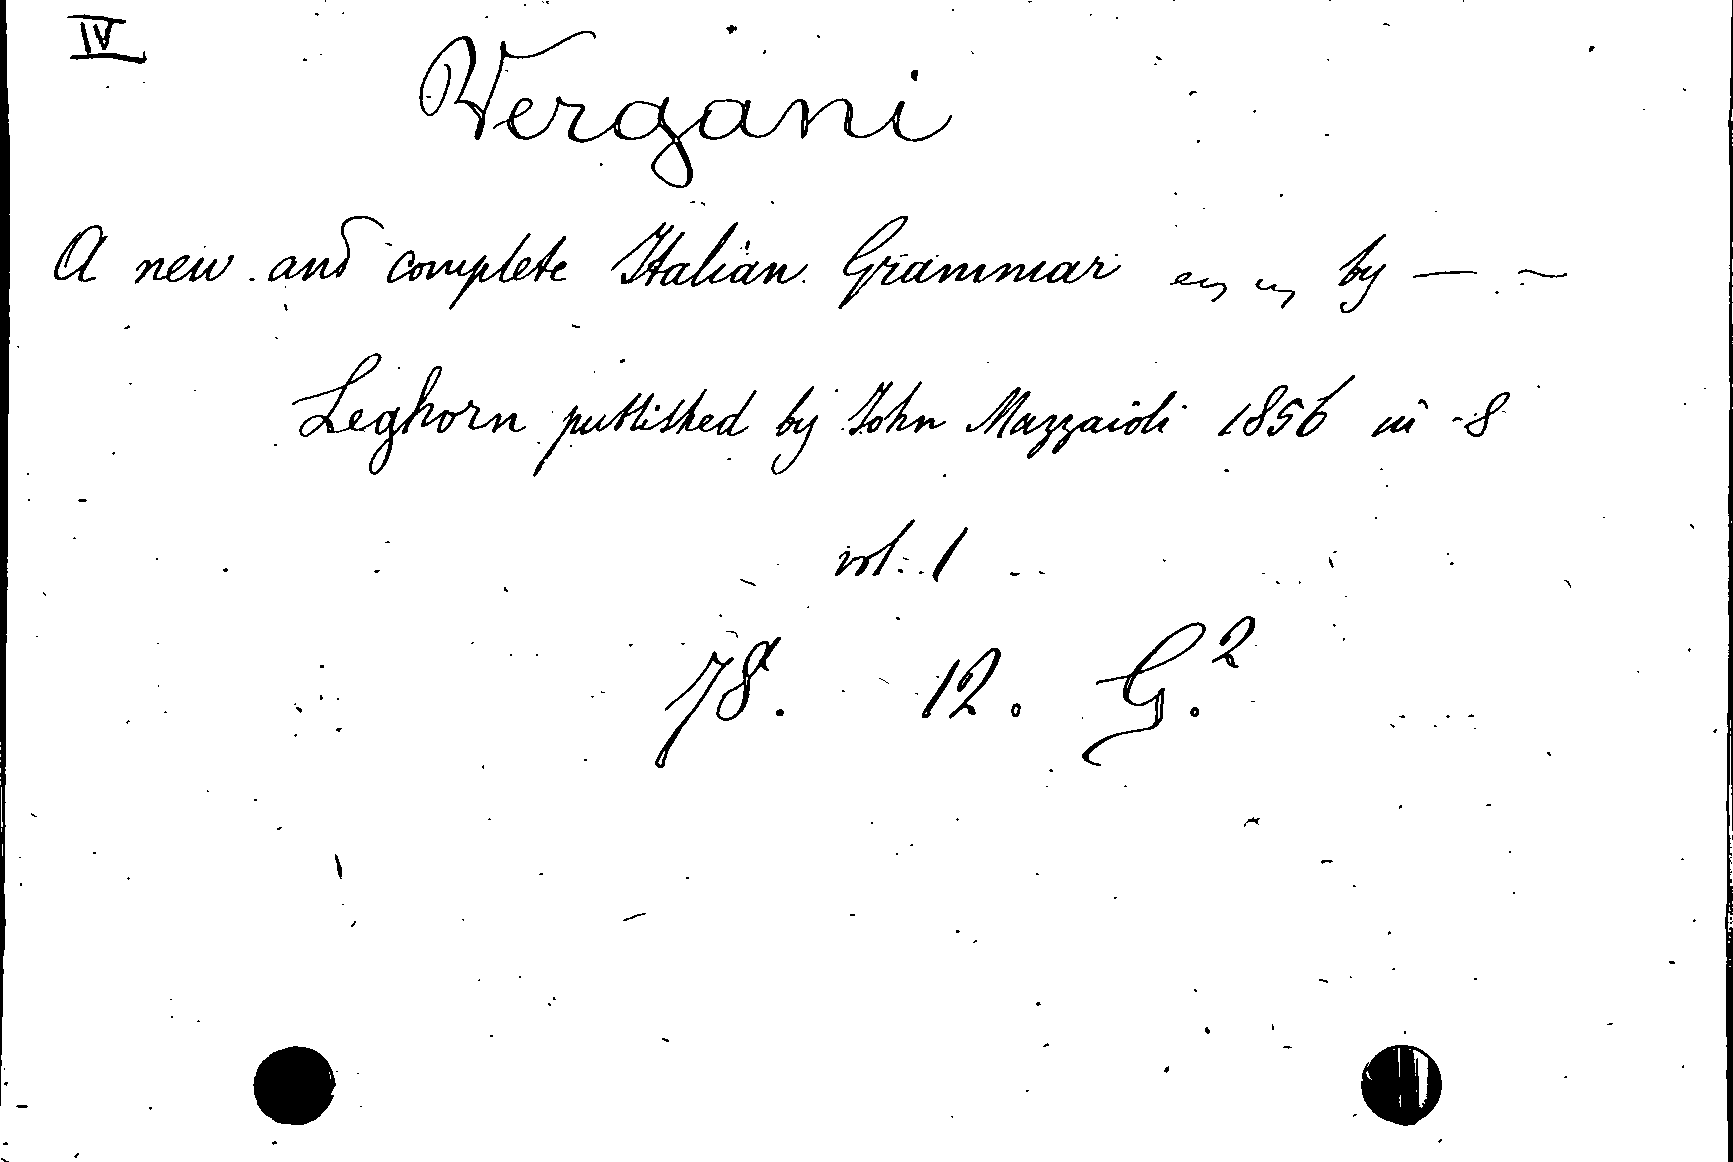 IV
Vergani
A new and complete Italian Grammar by — —
Leghorn published by John Mazzaioli 1856 in -8
vol. 1
78. 12. G.²